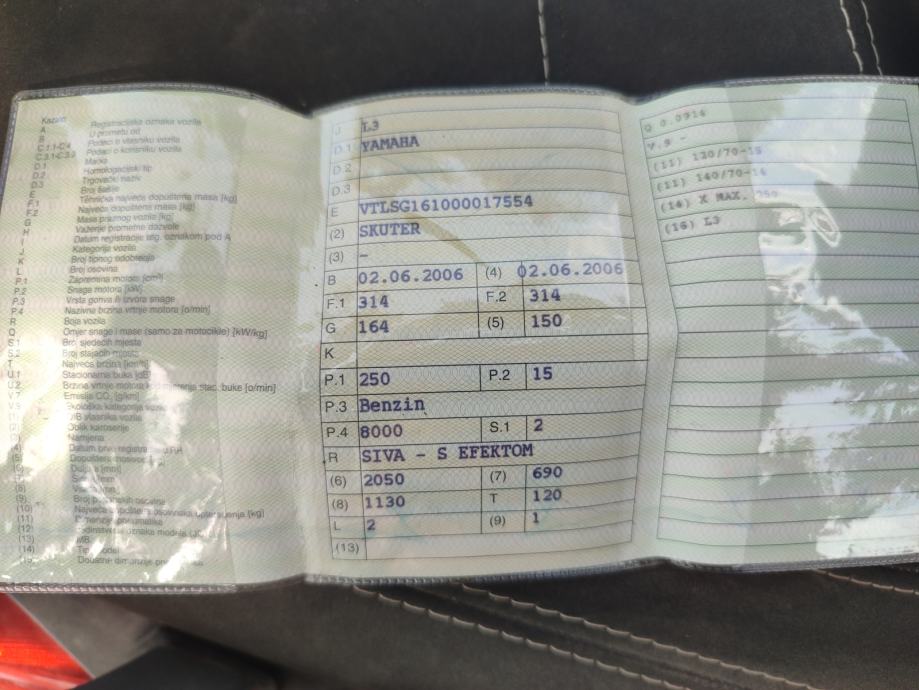 A Registracijska oznaka vozila
B U prometu od
C.1.1-C.4 Podaci o vlasniku vozila
C.3.1-C.3.3 Podaci o korisniku vozila
D.1 Marka
D.2 Homologacijski tip
D.3 Trgovački naziv
E Broj šasije
F.1 Tehnička najveća dopuštena masa [kg]
F.2 Najveća dopuštena masa [kg]
G Masa praznog vozila [kg]
H Važenje prometne dozvole
I Datum registracije
J Kategorija vozila
K Broj tipnog odobrenja
L Broj osovina
P.1 Zapremina motora [cm³]
P.2 Snaga motora [kW]
P.3 Vrsta goriva ili izvora snage
P.4 Nazivna brzina vrtnje motora [o/min]
R Boja vozila
Q Omjer snage i mase (samo za motocikle) [kW/kg]
S.1 Broj sjedećih mjesta
S.2 Broj stajaćih mjesta
T Najveća brzina [km/h]
U.1 Stacionarna buka [dB]
U.2 Brzina vrtnje motora stac. buke [o/min]
V.7 Emisija CO₂ [g/km]
V.9 Ekološka kategorija vozila
J L3
D.1 YAMAHA
D.2
D.3
E VTLSG161000017554
(2) SKUTER
(3) -
B 02.06.2006 (4) 02.06.2006
F.1 314 F.2 314
G 164 (5) 150
K
P.1 250 P.2 15
P.3 Benzin
P.4 8000 S.1 2
R SIVA - S EFEKTOM
(6) 2050 (7) 690
(8) 1130 T 120
L 2 (9) 1
(13)
Q 0.0914
V.9 -
(11) 120/70-15
(11) 140/70-14
(14) X MAX. 250
(16) L3